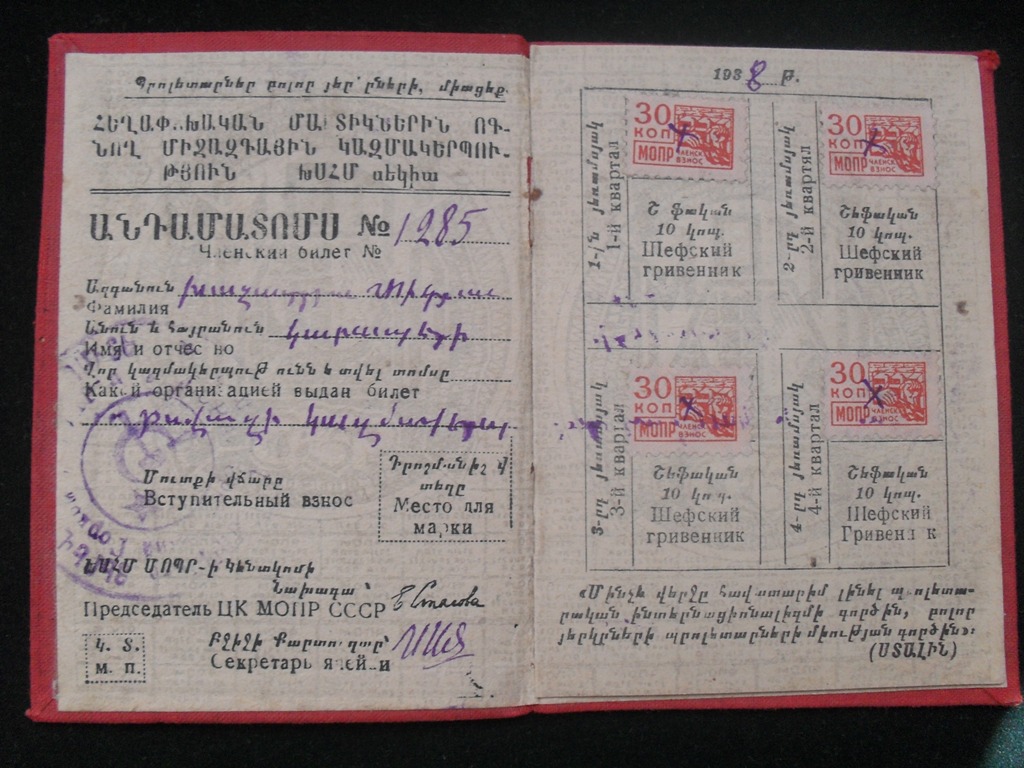 Պրոլետարներ բոլոր յերկրների, միացեք.
ՀԵՂԱՓՈԽԱԿԱՆ ՄԱՐՏԻԿՆԵՐԻՆ ՕԳ-
ՆՈՂ ՄԻՋԱԶԳԱՅԻՆ ԿԱԶՄԱԿԵՐՊՈՒ-
ԹՅՈՒՆ ԽՍՀՄ սեկցիա
ԱՆԴԱՄԱՏՈՄՍ № 1285
Членский билет №
Ազգանուն
Фамилия
Անուն և հայրանուն Կարապետի
Имя и отчество
Վոր կազմակերպութ ունն է տվել տոմսը
Какой организацией выдан билет
Մուտքի վճարը
Вступительный взнос
Դրոշմանիշ վ
տեղը
Место для
марки
ԽՍՀՄ ՄՈՊՐ-ի Կենտկոմի
Նախագահ
Председатель ЦК МОПР СССР Е Стасова
Բջիջի Քարտուղար
Секретарь ячейки
Կ. Տ.
м. п.
1938 թ.
1-ին յեռամսյակ
1-й квартал
30
КОП
МОПР
ЧЛЕНСК
ВЗНОС
Շեֆական
10 կոպ.
Шефский
гривенник
2-րդ յեռամսյակ
2-й квартял
30
КОП
МОПР
ЧЛЕНСК
ВЗНОС
Շեֆական
10 կոպ.
Шефский
гривенник
3-րդ յեռամսյակ
3-й квартал
30
КОП
МОПР
ЧЛЕНСК
ВЗНОС
Շեֆական
10 կոպ.
Шефский
гривенник
4-րդ յեռամսյակ
4-й квартал
30
КОП
МОПР
ЧЛЕНСК
ВЗНОС
Շեֆական
10 կոպ.
Шефский
Гривенник
«Մինչև վերջը հավատարիմ լինել պրոլետա-
րական ինտերնացիոնալիզմի գործին, բոլոր
յերկրների պրոլետարների միության գործին»:
(ՍՏԱԼԻՆ)